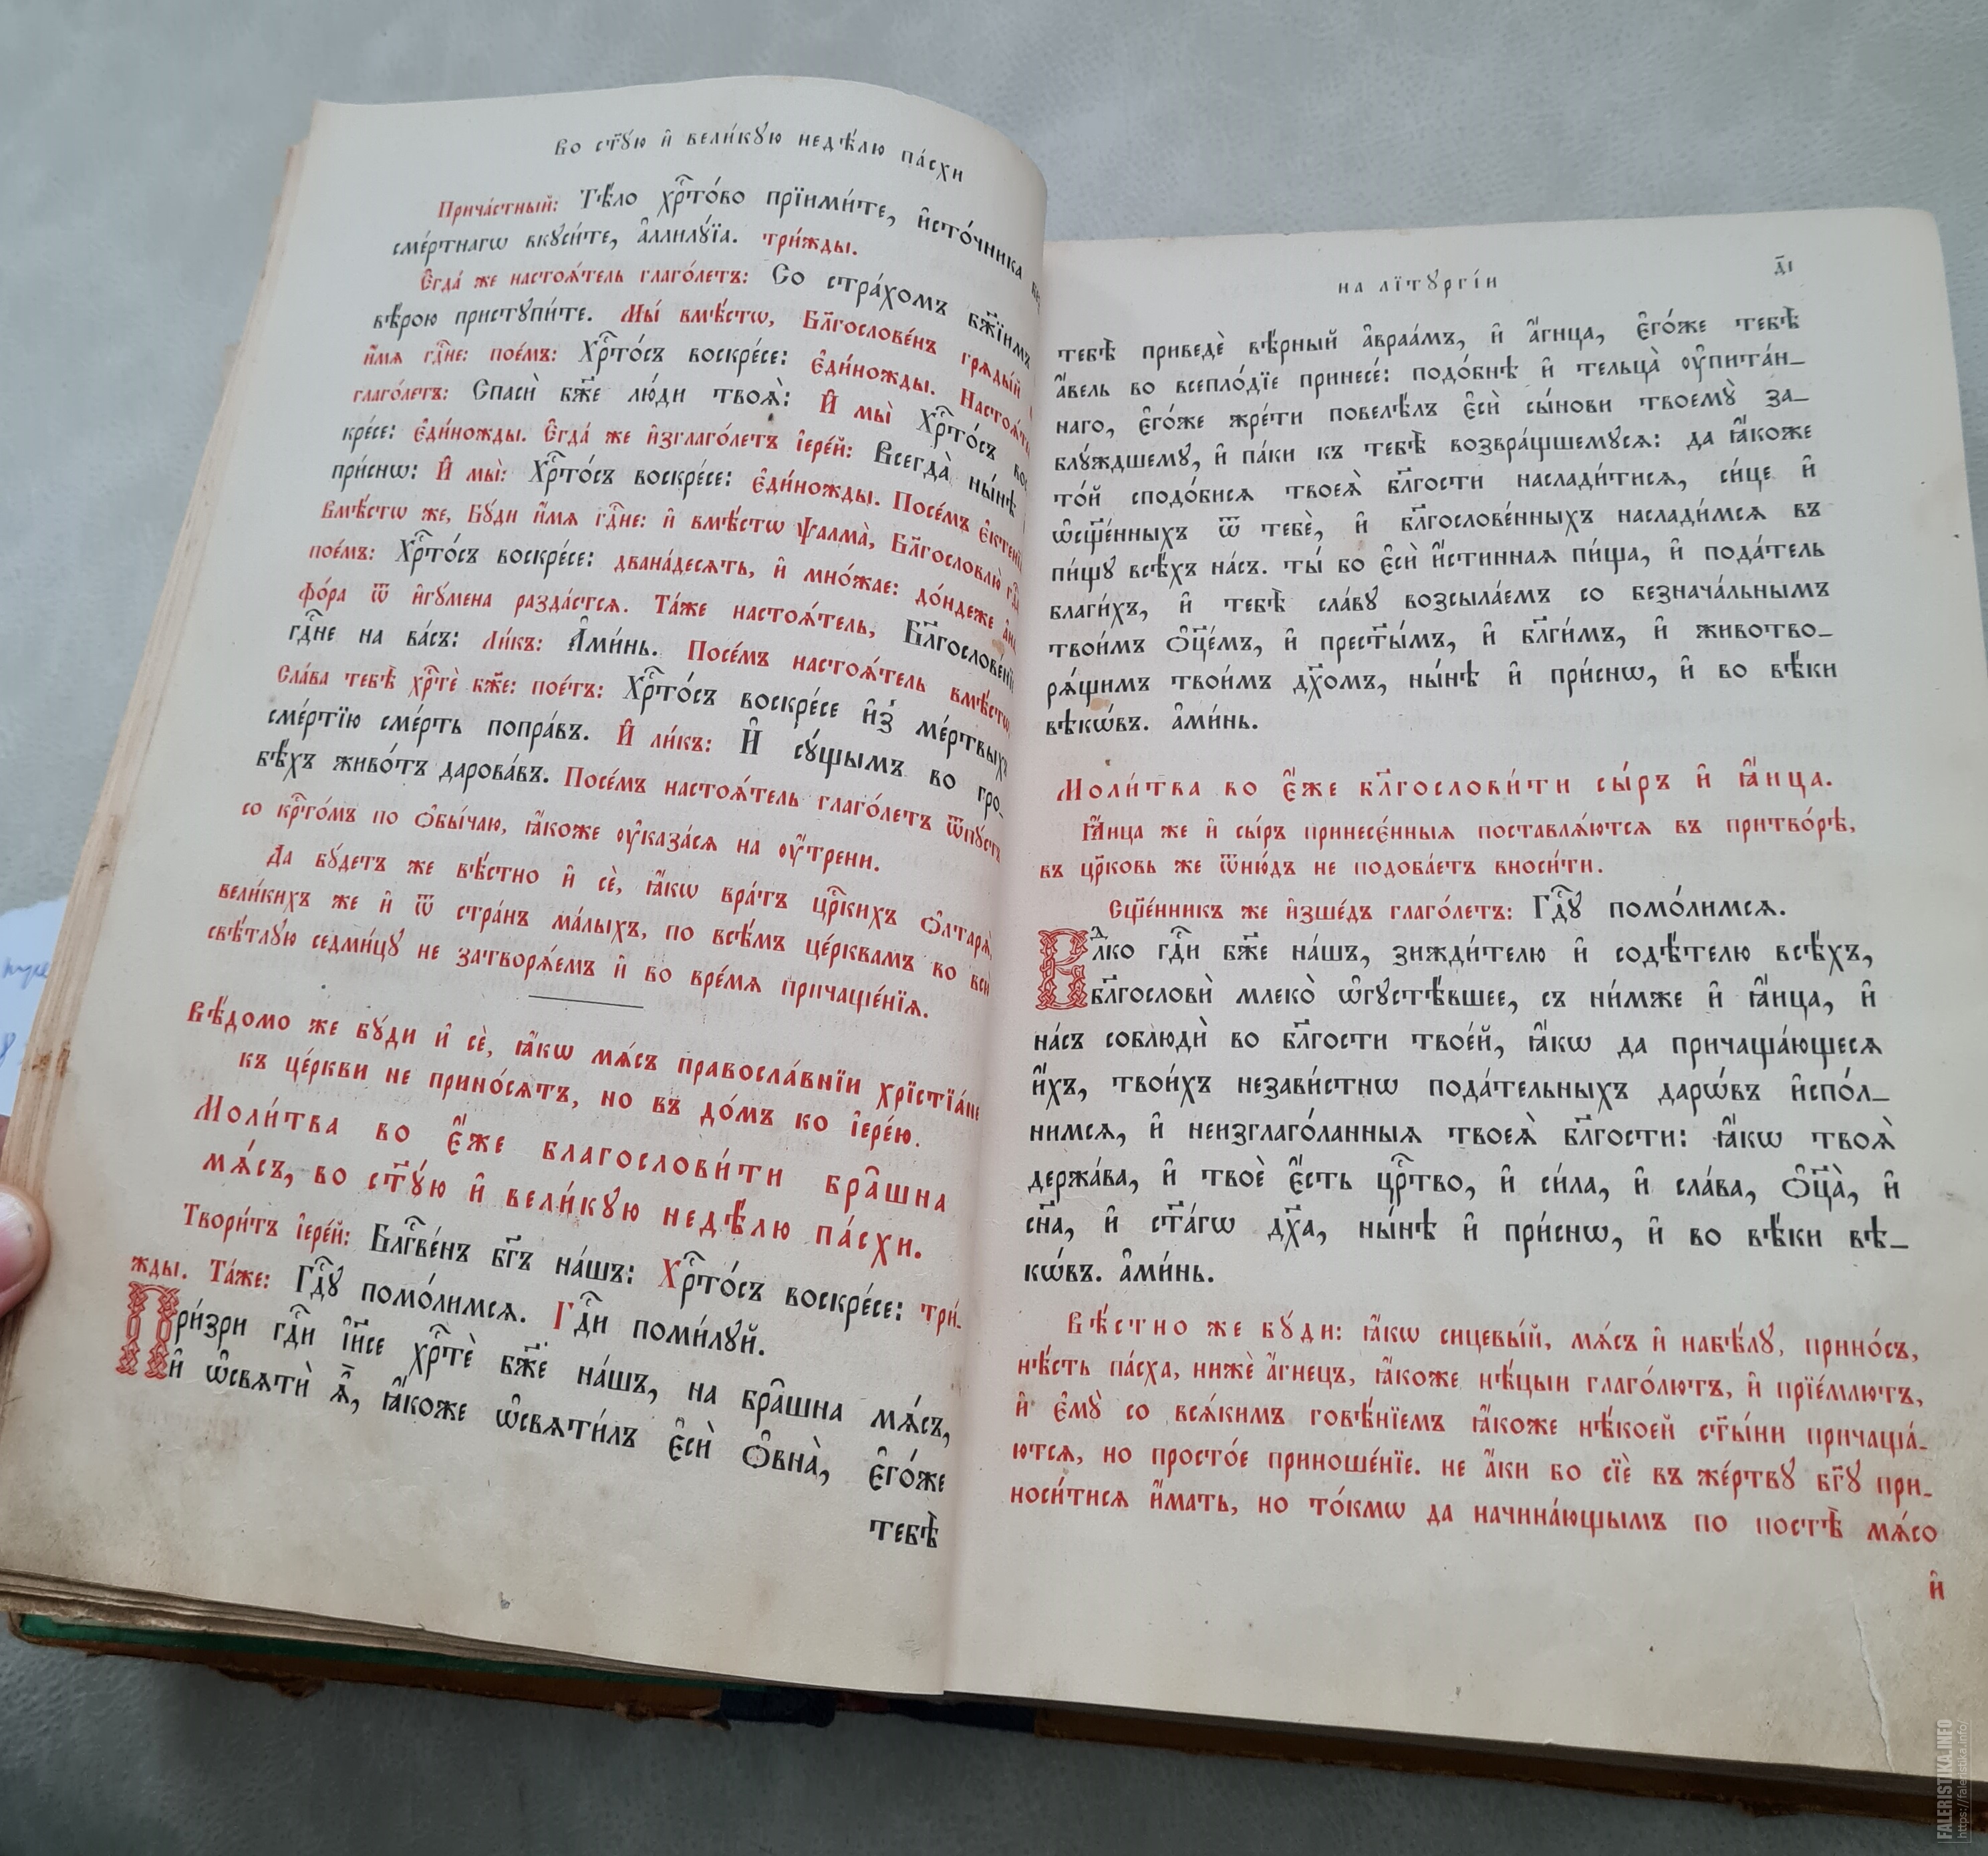 Во ст҃ꙋю и҆ вели́кꙋю недѣ́лю па́схи
Прича́стный: Тѣ́ло хрⷭ҇то́во прїими́те, и҆сто́чника
сме́ртнагѡ вкꙋси́те, а҆ллилꙋ́їа. три́жды.
Є҆гда́ же настоѧ́тель глаго́летъ: Со стра́хомъ бж҃їимъ
вѣ́рою пристꙋпи́те. Мы́ вмѣ́стѡ, Бл҃гослове́нъ грѧды́й
и҆́мѧ гдⷭ҇не: пое́мъ: Хрⷭ҇то́съ воскре́се: є҆ди́ножды.
глаго́летъ: Спасѝ бж҃е лю́ди твоѧ̑: И҆ мы̀ Хрⷭ҇то́съ
кре́се: є҆ди́ножды. Є҆гда́ же и҆зглаго́летъ і҆ере́й: Всегда̀ ны́нѣ
при́снѡ: И҆ мы̀: Хрⷭ҇то́съ воскре́се: є҆ди́ножды. Посе́мъ
Вмѣ́стѡ же, Бꙋ́ди и҆́мѧ гдⷭ҇не: и҆ вмѣ́стѡ ѱалма̀, Бл҃гословлю̀
пое́мъ: Хрⷭ҇то́съ воскре́се: двана́десѧть, и҆ мно́жае: до́ндеже
фо́ра ѿ и҆гꙋ́мена разда́стсѧ. Та́же настоѧ́тель, Бл҃гослове́нїе
гдⷭ҇не на ва́съ: Ли́къ: А҆ми́нь. Посе́мъ настоѧ́тель вмѣ́стѡ,
Сла́ва тебѣ̀ хрⷭ҇тѐ бж҃е: пое́тъ: Хрⷭ҇то́съ воскре́се и҆з̾ ме́ртвыхъ
сме́ртїю сме́рть попра́въ. И҆ ли́къ: И҆ сꙋ́щымъ во гро_
бѣ́хъ живо́тъ дарова́въ. Посе́мъ настоѧ́тель глаго́летъ ѿпꙋ́стъ
со крⷭ҇то́мъ по ѻ҆бы́чаю, ꙗ҆́коже ᲂу҆каза́сѧ на ᲂу҆́трени.
Да бꙋ́детъ же вѣ́стно и҆ сѐ, ꙗ҆́кѡ вра́тъ црⷭ҇кихъ ѻ҆лтарѧ̀
вели́кихъ же и҆ ѿ стра́нъ ма́лыхъ, по всѣ́мъ це́рквамъ во всю̀
свѣ́тлꙋю седми́цꙋ не затворѧ́емъ и҆ во вре́мѧ причаще́нїѧ.
Вѣ́домо же бꙋ́ди и҆ сѐ, ꙗ҆́кѡ мѧ́съ правосла́внїи хрїстїа́не
къ це́ркви не прино́сѧтъ, но въ до́мъ ко і҆ере́ю.
Моли́тва во є҆́же благослови́ти бра̑шна
мѧ́съ, во ст҃ꙋ́ю и҆ вели́кꙋю недѣ́лю па́схи.
Твори́тъ і҆ере́й: Бл҃гве́нъ бг҃ъ на́шъ: Хрⷭ҇то́съ воскре́се: три́_
жды. Та́же: Гдⷭ҇ꙋ помо́лимсѧ. Гдⷭ҇и поми́лꙋй.
При́зри гдⷭ҇и і҆и҃се хрⷭ҇тѐ бж҃е на́шъ, на бра̑шна мѧ́съ,
и҆ ѡ҆свѧтѝ ѧ҆̀, ꙗ҆́коже ѡ҆свѧти́лъ є҆сѝ ѻ҆вна̀, є҆го́же
тебѣ̀
на лїтꙋргі́и
д҃і
тебѣ̀ приведѐ вѣ́рный а҆враа́мъ, и҆ а҆́гнца, є҆го́же тебѣ̀
а҆́вель во всепло́дїе принесе́: подо́бнѣ и҆ тельца̀ ᲂу҆пита́н_
наго, є҆го́же жре́ти повелѣ́лъ є҆сѝ сы́нови твоемꙋ̀ за_
блꙋ́ждшемꙋ, и҆ па́ки къ тебѣ̀ возвра́щшемꙋсѧ: да ꙗ҆́коже
то́й сподо́бисѧ твоеѧ̀ бл҃гости наслади́тисѧ, си́це и҆
ѡ҆сщ҃е́нныхъ ѿ тебѐ, и҆ бл҃гослове́нныхъ наслади́мсѧ въ
пи́щꙋ всѣ́хъ на́съ. ты́ бо є҆сѝ и҆́стиннаѧ пи́ща, и҆ пода́тель
благи́хъ, и҆ тебѣ̀ сла́вꙋ возсыла́емъ со безнача́льнымъ
твои́мъ ѻ҆ц҃е́мъ, и҆ прест҃ы́мъ, и҆ бл҃ги́мъ, и҆ животво_
рѧ́щимъ твои́мъ дх҃омъ, ны́нѣ и҆ при́снѡ, и҆ во вѣ́ки
вѣкѡ́въ. а҆ми́нь.
Моли́тва во є҆́же бл҃гослови́ти сы́ръ и҆ ꙗ҆́ица.
Ꙗ҆́ица же и҆ сы́ръ принесє́нныѧ поставлѧ́ютсѧ въ притво́рѣ,
въ цр҃ковь же ѿню́дъ не подоба́етъ вноси́ти.
Сщ҃е́нникъ же и҆зше́дъ глаго́летъ: Гдⷭ҇ꙋ помо́лимсѧ.
Влⷣко гдⷭ҇и бж҃е на́шъ, зижди́телю и҆ содѣ́телю всѣ́хъ,
бл҃гословѝ млеко̀ ѡ҆гꙋстѣ́вшее, съ ни́мже и҆ ꙗ҆́ица, и҆
на́съ соблюдѝ во бл҃гости твое́й, ꙗ҆́кѡ да причаща́ющесѧ
и҆́хъ, твои́хъ незави́стнѡ пода́тельныхъ дарѡ́въ и҆спо́л_
нимсѧ, и҆ неизглаго́ланныѧ твоеѧ̀ бл҃гости: ꙗ҆́кѡ твоѧ̀
держа́ва, и҆ твоѐ є҆́сть црⷭ҇тво, и҆ си́ла, и҆ сла́ва, ѻ҆ц҃а̀, и҆
сн҃а, и҆ ст҃а́гѡ дх҃а, ны́нѣ и҆ при́снѡ, и҆ во вѣ́ки вѣ_
кѡ́въ. а҆ми́нь.
Вѣ́стно же бꙋ́ди: ꙗ҆́кѡ сицевы́й, мѧ́съ и҆ набѣ́лꙋ, прино́съ,
нѣ́сть па́сха, нижѐ а҆́гнецъ, ꙗ҆́коже нѣ́цыи глаго́лютъ, и҆ прїе́млютъ,
и҆ є҆мꙋ̀ со всѧ́кимъ говѣ́нїемъ ꙗ҆́коже нѣ́коей ст҃ы́ни причаща́_
ютсѧ, но просто́е приноше́нїе. не а҆́ки бо сїѐ въ же́ртвꙋ бг҃ꙋ при_
носи́тисѧ и҆́мать, но то́кмѡ да начина́ющымъ по постѣ̀ мѧ́со
и҆
FALERISTIKA.INFO
https://faleristika.info/